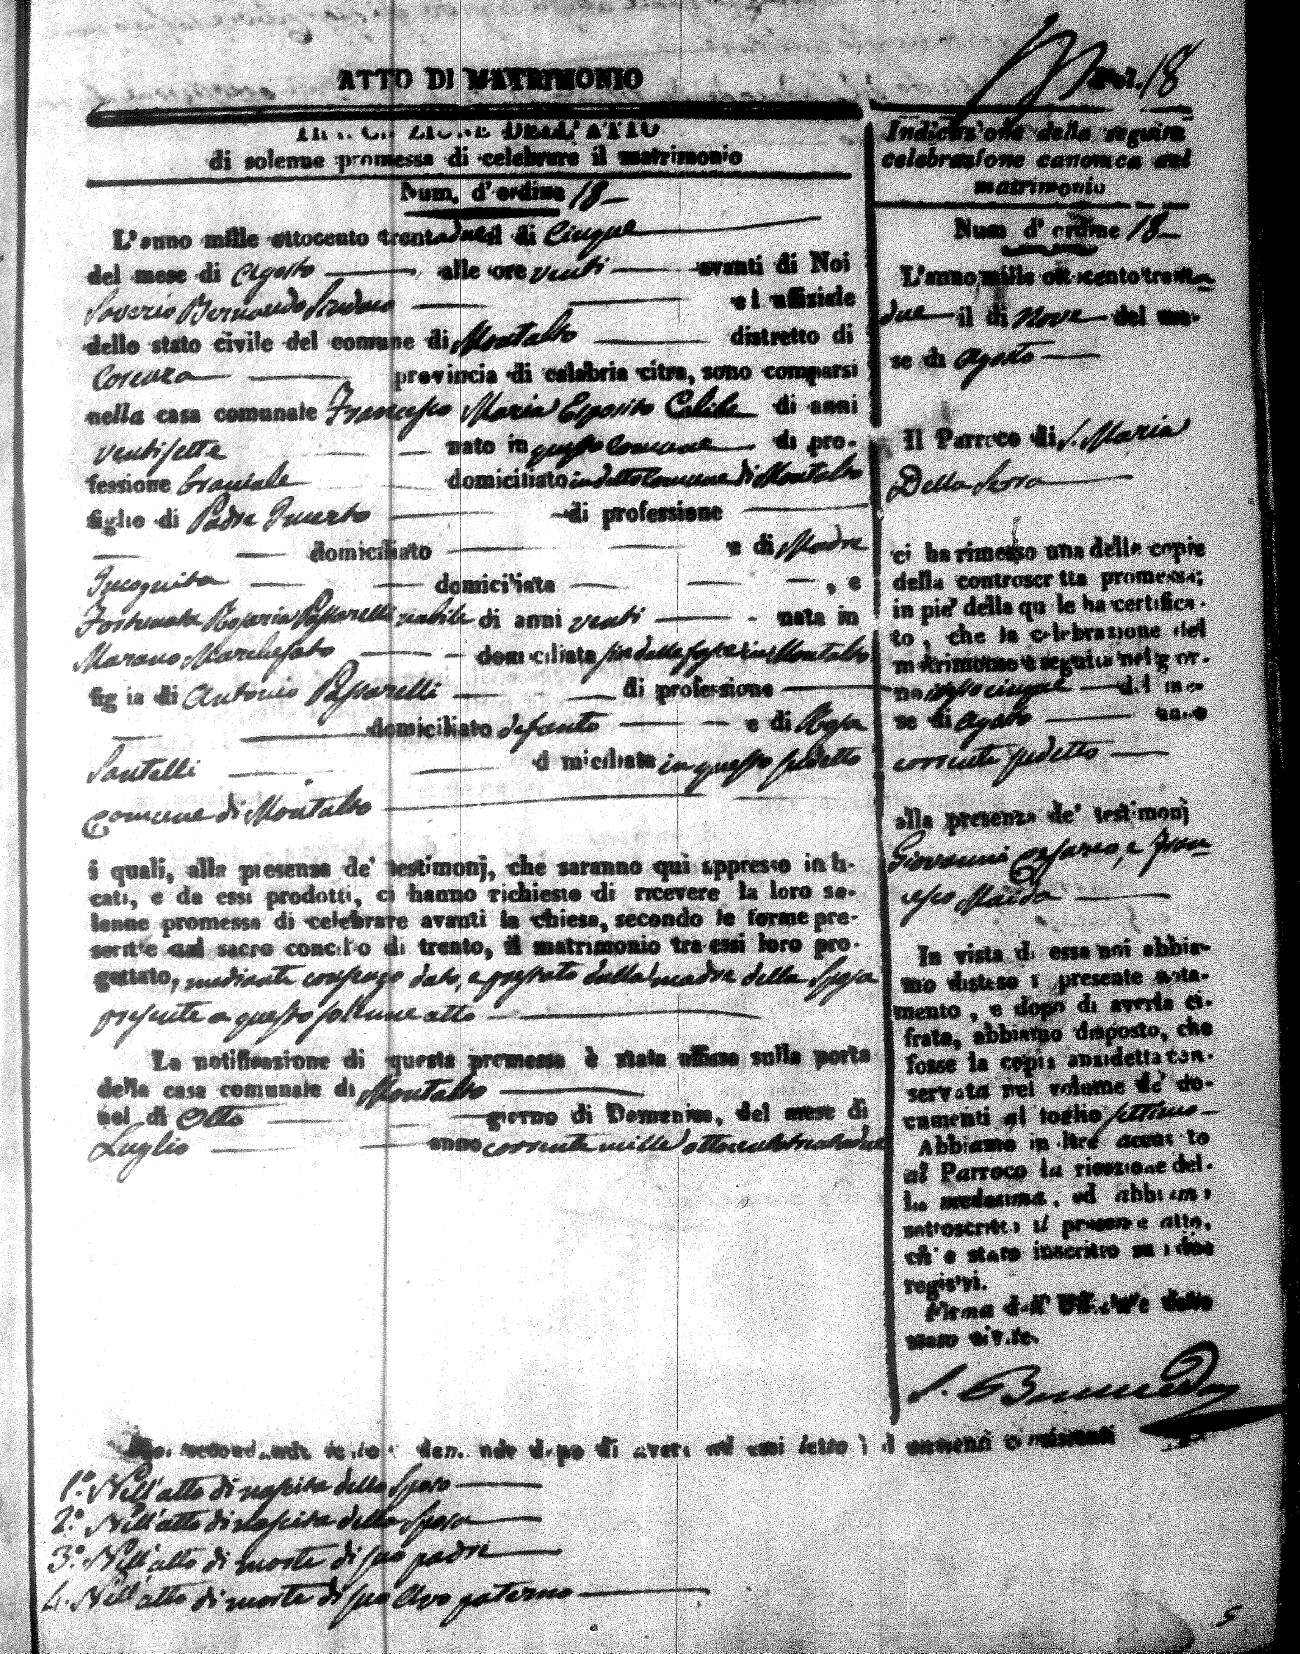 ATTO DI MATRIMONIO
Vol. 18
DELL'ATTO
di solenne promessa di celebrare il matrimonio
Num. d'ordine 18
L'anno mille ottocento trentadue il di Cinque
del mese di Agosto alle ore venti avanti di Noi
Saverio Bernardo uffiziale
dello stato civile del comune di Montalto distretto di
Cosenza provincia di calabria citra, sono comparsi
nella casa comunale Francesco Maria Esposito Celibe di anni
ventisette nato in questo Comune di pro-
fessione Braciale domiciliato in detto Comune di Montalto
figlio di Padre Incerto di professione
domiciliato e di Madre
Incognita domiciliata , e
Fortunata Rosaria Passarelli nubile di anni venti nata in
Marano Marchesato domiciliata in Montalto
figlia di Antonio Passarelli di professione
domiciliato defunto e di Rosa
Santelli domiciliata in questo sudetto
Comune di Montalto
i quali, alla presenza de' testimonj, che saranno qui appresso indi-
cati, e da essi prodotti, ci hanno richiesto di ricevere la loro so-
lenne promessa di celebrare avanti la chiesa, secondo le forme pre-
scritte dal sacro concilio di trento, il matrimonio tra essi loro pro-
gettato, mediante consenso dato, e prestato dalla madre della Sposa
presente a questo solenne atto
La notificazione di questa promessa è stata affissa sulla porta
della casa comunale di Montalto
nel di Otto giorno di Domenica, del mese di
Luglio anno corrente mille ottocento trentadue
dopo di avere ad essi letto i documenti
1.° Nell'atto di nascita dello Sposo
2.° Nell'atto di nascita della Sposa
3.° Nell'atto di morte di suo padre
4. Nell'atto di morte di suo Avo paterno
Indicazione della seguita
celebrazione canonica del
matrimonio
Num d'ordine 18
L'anno mille ottocento trenta
due il di nove del me-
se di Agosto
Il Parroco di S. Maria
Della Serra
ci ha rimesso una delle copie
della controscritta promessa;
in piè della quale ha certifica-
to, che la celebrazione del
matrimonio è seguita nel gior-
no cinque del me-
se di Agosto anno
corrente sudetto
alla presenza de' testimonj
Giovanni Cesario, e Fran
cesco Maida
In vista di essa noi abbia-
mo disteso il presente nota-
mento, e dopo di averla ci-
frata, abbiamo disposto, che
fosse la copia anzidetta con-
servata nel volume de' do-
cumenti al foglio settimo
Abbiamo in oltre accusato
al Parroco la ricezione del-
la medesima, ed abbiamo
sottoscritto il presente atto,
ch'è stato inscritto su i due
registri.
Firma dell' Uffiziale dello
stato civile.
S. Bernardo
5